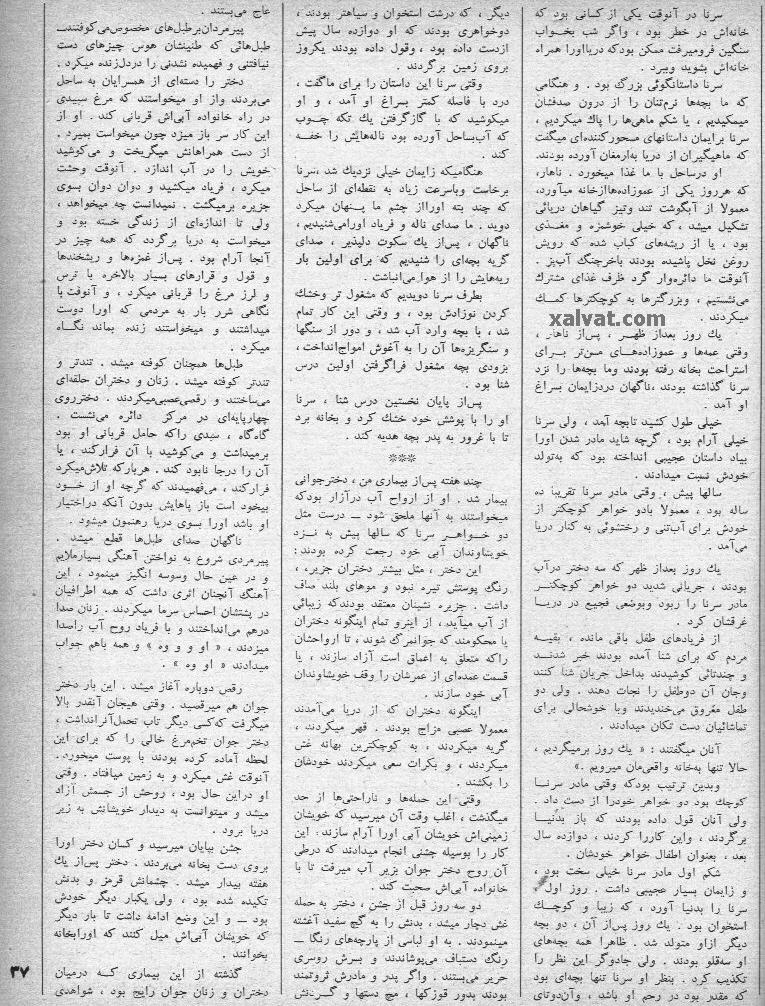 سرنا در آنوقت یکی از کسانی بود که
خانه‌اش در خطر بود ، واگر شب بخواب
سنگین فرومیرفت ممکن بودکه دریااورا همراه
خانه‌اش بشوید وببرد .
سرنا داستانگوئی بزرگ بود . و هنگامی
که ما بچه‌ها نرم‌تنان را از درون صدفشان
میمکیدیم ، یا شکم ماهی‌ها را پاك میکردیم ،
سرنا برایمان داستانهای مسحورکننده‌ای میگفت
که ماهیگیران از دریا به‌ارمغان آورده بودند.
او درساحل با ما غذا میخورد . ناهار،
که هرروز یکی از عموزاده‌هااز‌خانه می‌آورد،
معمولا از آبگوشت تند وتیز گیاهان دریائی
تشکیل میشد ، که خیلی خوشمزه و مغذی
بود ، یا از ریشه‌های کباب شده که رویش
روغن نخل پاشیده بودند باخرچنگ آب‌پز .
آنوقت ما دائره‌وار گرد ظرف غذای مشترك
می‌نشستیم ، وبزرگترها به کوچکترها کمك
میکردند .
یك روز بعداز ظهر ، پس‌از ناهار ،
وقتی عمه‌ها و عموزاده‌های مسن‌تر برای
استراحت بخانه رفته بودند وما بچه‌ها را نزد
سرنا گذاشته بودند ،ناگهان دردزایمان بسراغ
او آمد .
خیلی طول کشید تابچه آمد ، ولی سرنا
خیلی آرام بود ، گرچه شاید مادر شدن اورا
بیاد داستان عجیبی انداخته بود که به‌تولد
خودش نسبت میدادند .
سالها پیش ، وقتی مادر سرنا تقریباً ده
ساله بود ، معمولا بادو خواهر کوچکتر از
خودش برای آب‌تنی و رختشوئی به کنار دریا
می‌آمد .
یك روز بعداز ظهر که سه دختر درآب
بودند ، جریانی شدید دو خواهر کوچکتر
مادر سرنا را ربود وبوضعی فجیع در دریا
غرقشان کرد .
از فریادهای طفل باقی مانده ، بقیه
مردم که برای شنا آمده بودند خبر شدند
و چندتائی کوشیدند بداخل جریان شنا کنند
وجان آن دوطفل را نجات دهند . ولی دو
طفل مغروق می‌خندیدند وبا خوشحالی برای
تماشائیان دست تکان میدادند .
آنان میگفتند : « یك روز برمیگردیم ،
حالا تنها به‌خانه واقعی‌مان میرویم .»
وبدین ترتیب بودکه وقتی مادر سرنا
کوچك بود دو خواهر خودرا از دست داد .
ولی آنان قول داده بودند که باز بدنیا
برگردند ، واین کاررا کردند ، دوازده سال
بعد ، بعنوان اطفال خواهر خودشان .
شکم اول مادر سرنا خیلی سخت بود ،
و زایمان بسیار عجیبی داشت . روز اول ،
سرنا را بدنیا آورد ، که زیبا و کوچك
استخوان بود . یك روز پس‌از آن ، دو بچه
دیگر ازاو متولد شد . ظاهرا همه بچه‌های
او سه‌قلو بودند . ولی جادوگر این نظر را
تکذیب کرد . بنظر او سرنا تنها بچه‌ای بود
که مقدر بود در رحم او باشد ، وآن‌دوتای
دیگر ، که درشت استخوان و سیاهتر بودند ،
دوخواهری بودند که او دوازده سال پیش
ازدست داده بود ، وقول داده بودند یکروز
بروی زمین برگردند .
وقتی سرنا این داستان را برای ماگفت ،
درد با فاصله کمتر بسراغ او آمد ، و او
میکوشید که با گازگرفتن یك تکه چوب
که آب‌بساحل آورده بود ناله‌هایش را خفه
کند .
هنگامیکه زایمان خیلی نزدیك شد ،سرنا
برخاست وباسرعت زیاد به نقطه‌ای از ساحل
که چند بته اورااز چشم ما پنهان میکرد
دوید . ما صدای ناله و فریاد اورامی‌شنیدیم ،
ناگهان ، پس‌از یك سکوت دلپذیر ، صدای
گریه بچه‌ای را شنیدیم که برای اولین بار
ریه‌هایش را از هوا می‌انباشت .
بطرف سرنا دویدیم که مشغول تر وخشك
کردن نوزادش بود ، و وقتی این کار تمام
شد ، با بچه وارد آب شد ، و دور از سنگها
و سنگریزه‌ها آن را به آغوش امواج‌انداخت ،
بزودی بچه مشغول فراگرفتن اولین درس
شنا بود .
پس‌از پایان نخستین درس شنا ، سرنا
او را با پوشش خود خشك کرد و بخانه برد
تا با غرور به پدر بچه هدیه کند .
***
چند هفته پس‌از بیماری من ، دخترجوانی
بیمار شد . او از ارواح آب درآزار بودکه
میخواستند به آنها ملحق شود ــ درست مثل
دو خواهر سرنا که سالها پیش به نزد
خویشاوندان آبی خود رجعت کرده بودند:
این دختر ، مثل بیشتر دختران جزیره ،
رنگ پوستش تیره نبود و موهای بلند صاف
داشت . جزیره نشینان معتقد بودندکه زیبائی
از آب می‌آید ، از اینرو تمام اینگونه دختران
یا محکومند که جوانمرگ شوند ، تا ارواحشان
راکه متعلق به اعماق است آزاد سازند ، یا
قسمت عمده‌ای از عمرشان را وقف خویشاوندان
آبی خود سازند .
اینگونه دختران که از دریا می‌آمدند
معمولا عصبی مزاج بودند . قهر میکردند ،
گریه میکردند ، به کوچکترین بهانه غش
میکردند ، و بکرات سعی میکردند خودشان
را بکشند .
وقتی این حمله‌ها و ناراحتی‌ها از حد
میگذشت ، اغلب وقت آن میرسید که خویشان
زمینی‌اش خویشان آبی اورا آرام سازند: این
کار را بوسیله جشنی انجام میدادند که درطی
آن روح دختر جوان بزیر آب میرفت تا با
خانواده آبی‌اش صحبت کند .
دو سه روز قبل از جشن ، دختر به حمله
غش دچار میشد ، بدنش را به گچ سفید آغشته
مینمودند . به او لباسی از پارچه‌های رنگا ــ
رنگ دستباف می‌پوشاندند و بسرش روسری
حریر می‌بستند . واگر پدر و مادرش ثروتمند
بودند بدور قوزکها ، مچ دستها و گردنش
عاج می‌بستند .
پیرمردان‌برطبل‌های مخصوص‌می‌کوفتند
طبل‌هائی که طنینشان هوس چیزهای دست
نیافتنی و فهمیده نشدنی را دردل‌زنده میکرد .
دختر را دسته‌ای از همسرایان به ساحل
می‌بردند واز او میخواستند که مرغ سپیدی
در راه خانواده آبی‌اش قربانی کند . او از
این کار سر باز میزد چون میخواست بمیرد .
از دست همراهانش میگریخت و می‌کوشید
خویش را در آب اندازد . آنوقت وحشت
میکرد ، فریاد میکشید و دوان دوان بسوی
جزیره برمیگشت . نمیدانست چه میخواهد ،
ولی تا اندازه‌ای از زندگی خسته بود و
میخواست به دریا برگردد که همه چیز در
آنجا آرام بود . پس‌از غمزه‌ها و ریشخندها
و قول و قرارهای بسیار بالاخره با ترس
و لرز مرغ را قربانی میکرد ، و آنوقت با
نگاهی شرر بار به مردمی که اورا دوست
میداشتند و میخواستند زنده بماند نگاه
میکرد
طبل‌ها همچنان کوفته میشد . تندتر و
تندتر کوفته میشد . زنان و دختران حلقه‌ای
می‌ساختند و رقصی‌عصبی‌میکردند . دختر‌روی
چهارپایه‌ای در مرکز دائره می‌نشست .
گاه‌گاه ، سبدی راکه حامل قربانی او بود
برمیداشت و می‌کوشید با آن فرارکند ، یا
آن را درجا نابود کند . هربارکه تلاش‌میکرد
فرارکند ، می‌فهمیدند که گرچه او از خود
بیخود است باز پاهایش بدون آنکه دراختیار
او باشد اورا بسوی دریا رهنمون میشود .
ناگهان صدای طبل‌ها قطع میشد .
پیرمردی شروع به نواختن آهنگی بسیارملایم
و در عین حال وسوسه انگیز مینمود ، این
آهنگ آنچنان اثری داشت که همه اطرافیان
در پشتشان احساس سرما میکردند . زنان صدا
درهم می‌انداختند و با فریاد روح آب راصدا
میزدند ، « او و و وه » و همه باهم جواب
میدادند « او وه » .
رقص دوباره آغاز میشد . این بار دختر
جوان هم میرقصید . وقتی هیجان آنقدر بالا
میگرفت که‌کسی دیگر تاب تحمل‌آنرانداشت ،
دختر جوان تخم‌مرغ خالی را که برای این
لحظه آماده کرده بودند با پوست میخورد .
آنوقت غش میکرد و به زمین میافتاد . وقتی
او دراین حال بود ، روحش از جسمش آزاد
میشد و میتوانست به دیدار خویشانش به زیر
دریا برود .
جشن بپایان میرسید و کسان دختر اورا
بروی دست بخانه می‌بردند . دختر پس‌از یك
هفته بیدار میشد . چشمانش قرمز و بدنش
تکیده شده بود ، ولی یکبار دیگر خودش
بود ــ و این وضع ادامه داشت تا بار دیگر
که خویشان آبی‌اش میل کنند که اورابخانه
بخوانند .
گذشته از این بیماری که درمیان
دختران و زنان جوان رایج بود ، شواهدی
۳۷
xalvat.com